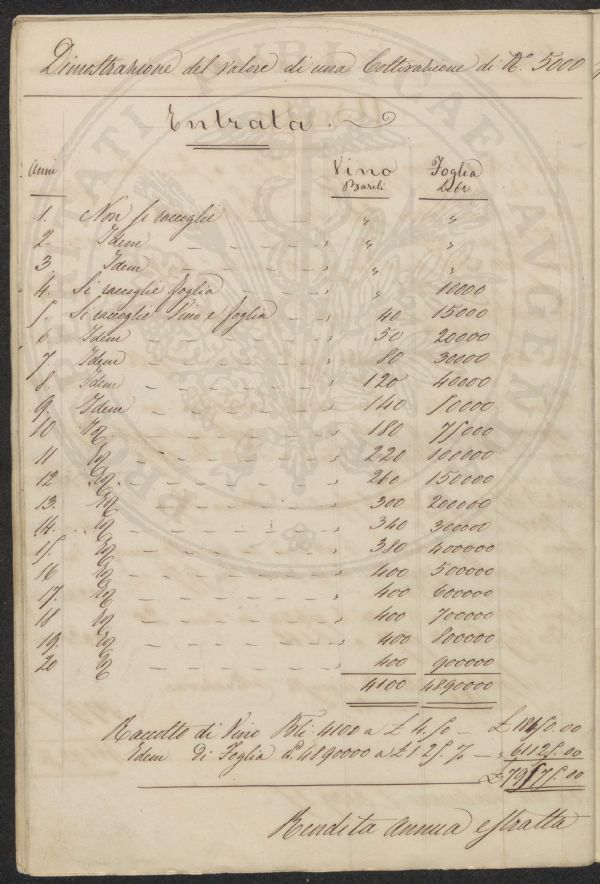 Dimostrazione del valore di una Coltivazione di N.º 5000
Entrata.
Anni Vino Barili Foglia Libr
1. Non si raccoglie " "
2 Idem " "
3 Idem " "
4. Si raccoglie foglia " 10000
5. Si raccoglie Vino e foglia 40 15000
6. Idem 50 20000
7. Idem 80 30000
8. Idem 120 40000
9. Idem 140 50000
10 180 75000
11 220 100000
12 260 150000
13. 300 200000
14. 340 300000
15. 380 400000
16 400 500000
17. 400 600000
18 400 700000
19. 400 800000
20 400 900000
4100 4890000
Raccolto di Vino Bli 4100 a £ 4.50 £ 18450.00
Idem di Foglia £. 4890000 a £ 1.25. % " 61125.00
£ 79575.00
Rendita annua estratta